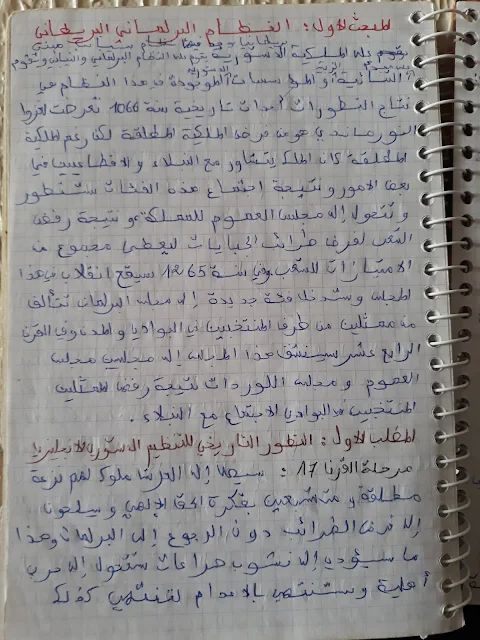 المبحث الأول: النظام البرلماني البريطاني
يقوم على الملكية الدستورية يقوم على النظام البرلماني والثنائي ويقوم
الثنائية والمؤسسات الموجودة في هذا النظام هي
نتاج التطورات أحداث تاريخية سنة 1066 تعرضت
النورماندي هو من فرض الملكية المطلقة لكن رغم الملكية
المطلقة كان الملك يتشاور مع النبلاء والاقطاعيين في
بعض الامور ونتيجة اجتماع هذه الفئات ستتطور
وتتحول إلى مجلس العموم للمملكة ونتيجة رفض
الشعب لفرض ضرائب الجبايات ليعطي مجموع من
الامتيازات للشعب وفي سنة 1265 سيقع انقلاب في هذا
المجلس وستدخل فئة جديدة إلى مجلس البرلمان تتألف
من ممثلين من طرف المنتخبين في البوادي والمدن وفي القرن
الرابع عشر سينشق هذا المجلس إلى مجلسين مجلس
العموم ومجلس اللوردات نتيجة رفض الممثلين
المنتخبين في البوادي الاجتماع مع النبلاء.
المطلب الأول: التطور التاريخي للتنظيم الدستوري الانجليزي
مرحلة القرن 17: سيصل إلى العرش ملوك لهم نزعة
مطلقة و متشبعين بفكرة الحق الإلهي و سيلجئون
إلى فرض الضرائب دون الرجوع إلى البرلمان وهذا
ما سيؤدي إلى نشوب صراعات ستتحول إلى حرب
أهلية وستنتهي بالاعدام لتنتهي كذلك